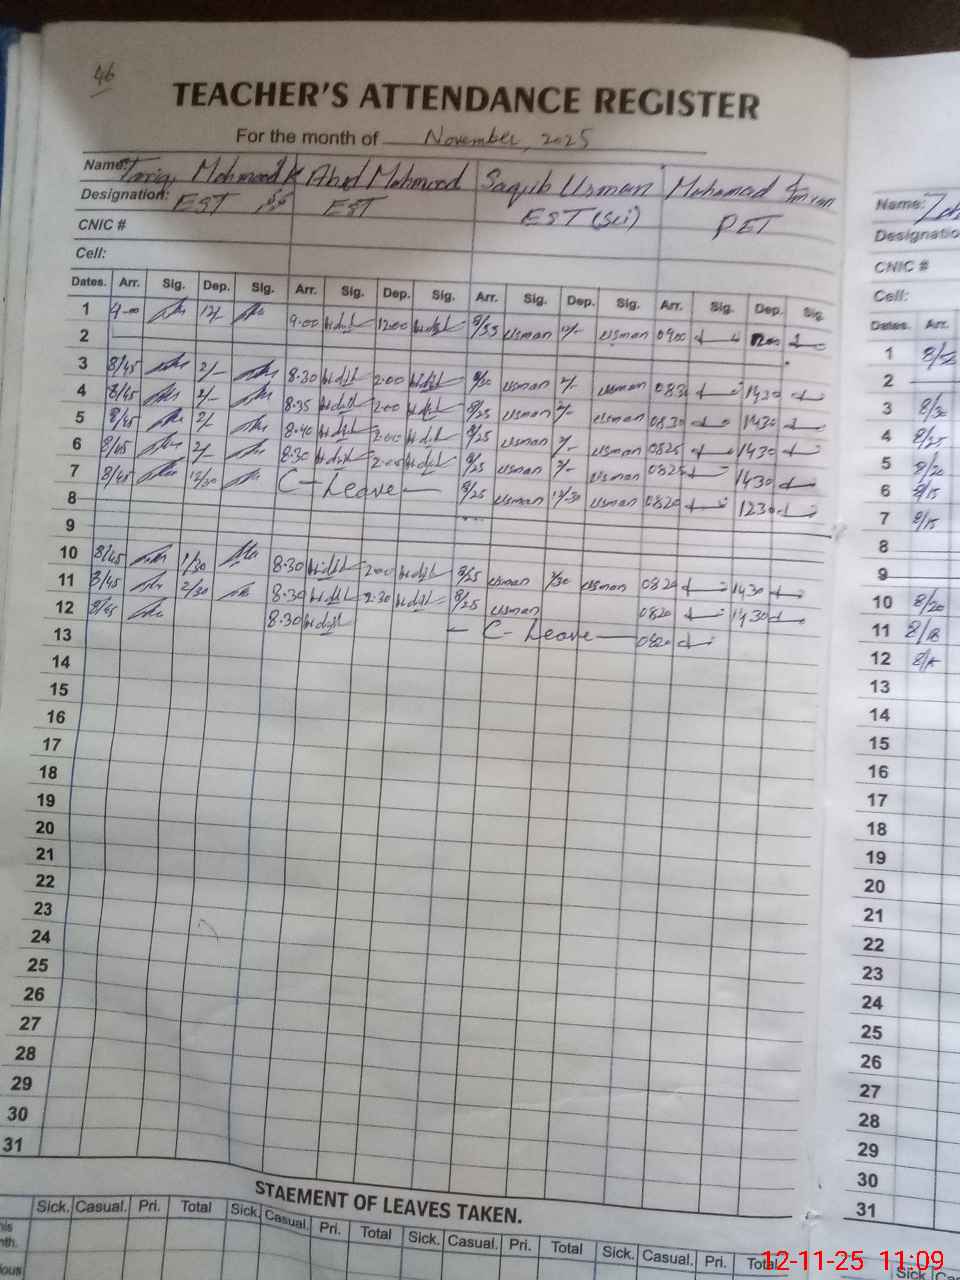 46
TEACHER'S ATTENDANCE REGISTER
For the month of November, 2025
Name: Tariq Mahmood K Abid Mahmood Saqub Usman Mohamad Imran
Designation: EST EST EST (Sci) PET
CNIC #
Cell:
Dates. Arr. Sig. Dep. Sig. Arr. Sig. Dep. Sig. Arr. Sig. Dep. Sig. Arr. Sig. Dep. Sig.
1 9-00 12/- 9.00 12.00 8/55 usman 12/- usman 0900 1200
2
3 8/45 2/- 8.30 2.00 8/30 usman 2/- usman 0830 1430
4 8/45 2/- 8.35 2.00 8/25 usman 2/- usman 0830 1430
5 8/45 2/- 8.40 2.00 8/25 usman 2/- usman 0825 1430
6 8/45 2/- 8.30 2.00 8/25 usman 2/- usman 0825 1430
7 8/45 12/30 C-Leave 8/25 usman 12/30 usman 0820 1230
8
9
10 8/45 1/30 8.30 2.00 8/25 usman /30 usman 0820 1430
11 8/45 2/30 8.30 2.30 8/25 usman 0820 1430
12 8/45 8.30 - C-Leave - 0820
13
14
15
16
17
18
19
20
21
22
23
24
25
26
27
28
29
30
31
STAEMENT OF LEAVES TAKEN.
Sick. Casual. Pri. Total Sick. Casual. Pri. Total Sick. Casual. Pri. Total Sick. Casual. Pri. Total
Name:
Designatio
CNIC #
Cell:
Dates. Arr.
1
2
3 8/30
4 8/25
5 8/20
6 8/15
7 8/15
8
9
10 8/20
11 8/18
12
13
14
15
16
17
18
19
20
21
22
23
24
25
26
27
28
29
30
31
Sick Ca
12-11-25 11:09